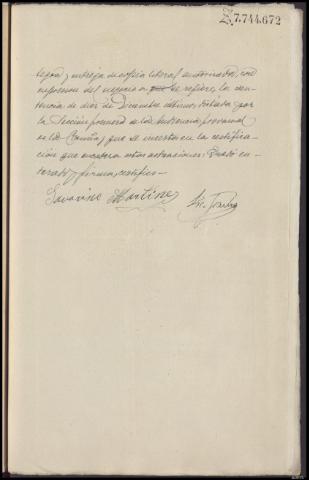 Z.7.744.672
legra, entrega de copia literal autorizada, con
expresion del negocio a que se refiere, la sen-
tencia de diez de Diciembre último, dictada por
la Sección primera de la Audiencia provincial
de la Coruña, que se inserta en la certifica-
ción que encabeza estas actuaciones. Quedó en-
terado, y firma, certifico.
Martinez